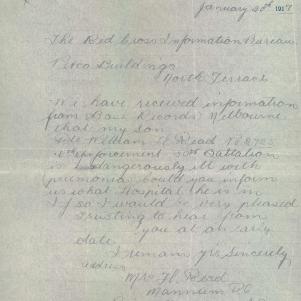 January 28th 1917
The Red Cross Information Bureau
Pirco Buildings
North Terrace
We have received information
from Base Records Melbourne
that my son
Pte William H Read No 8723
Reinforcement 50th Battalion
is dangerously ill with
pneumonia could you inform
us what Hospital he is in
if so I would be very pleased
Trusting to hear from
you at an early
date
I remain yrs Sincerely
address
Mrs H. Read
Mannum P.O.